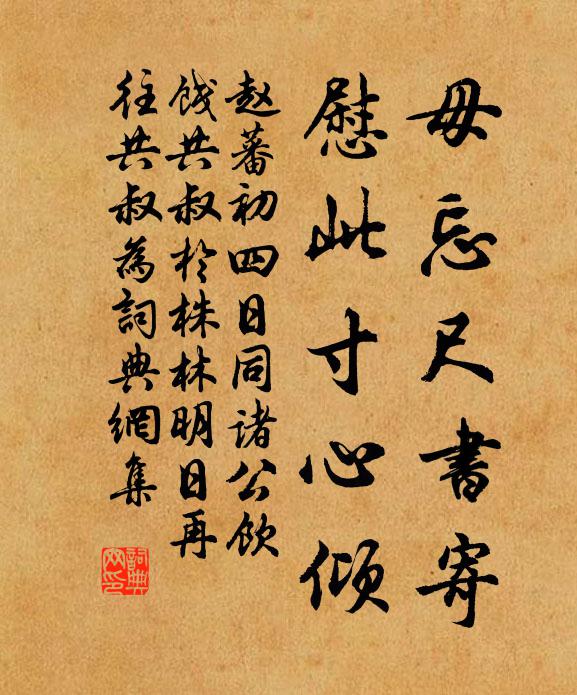 毋忘尺書寄
慰此寸心傾
赵蕃初四日同诸公飲
餞共叔於株林明日再
往共叔為詞典網集
詞典
网印